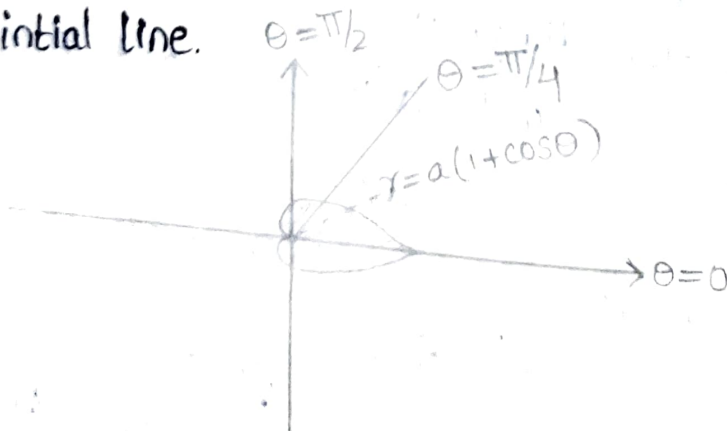 intial line.
θ = π/2
θ = π/4
r = a(1+cosθ)
θ = 0